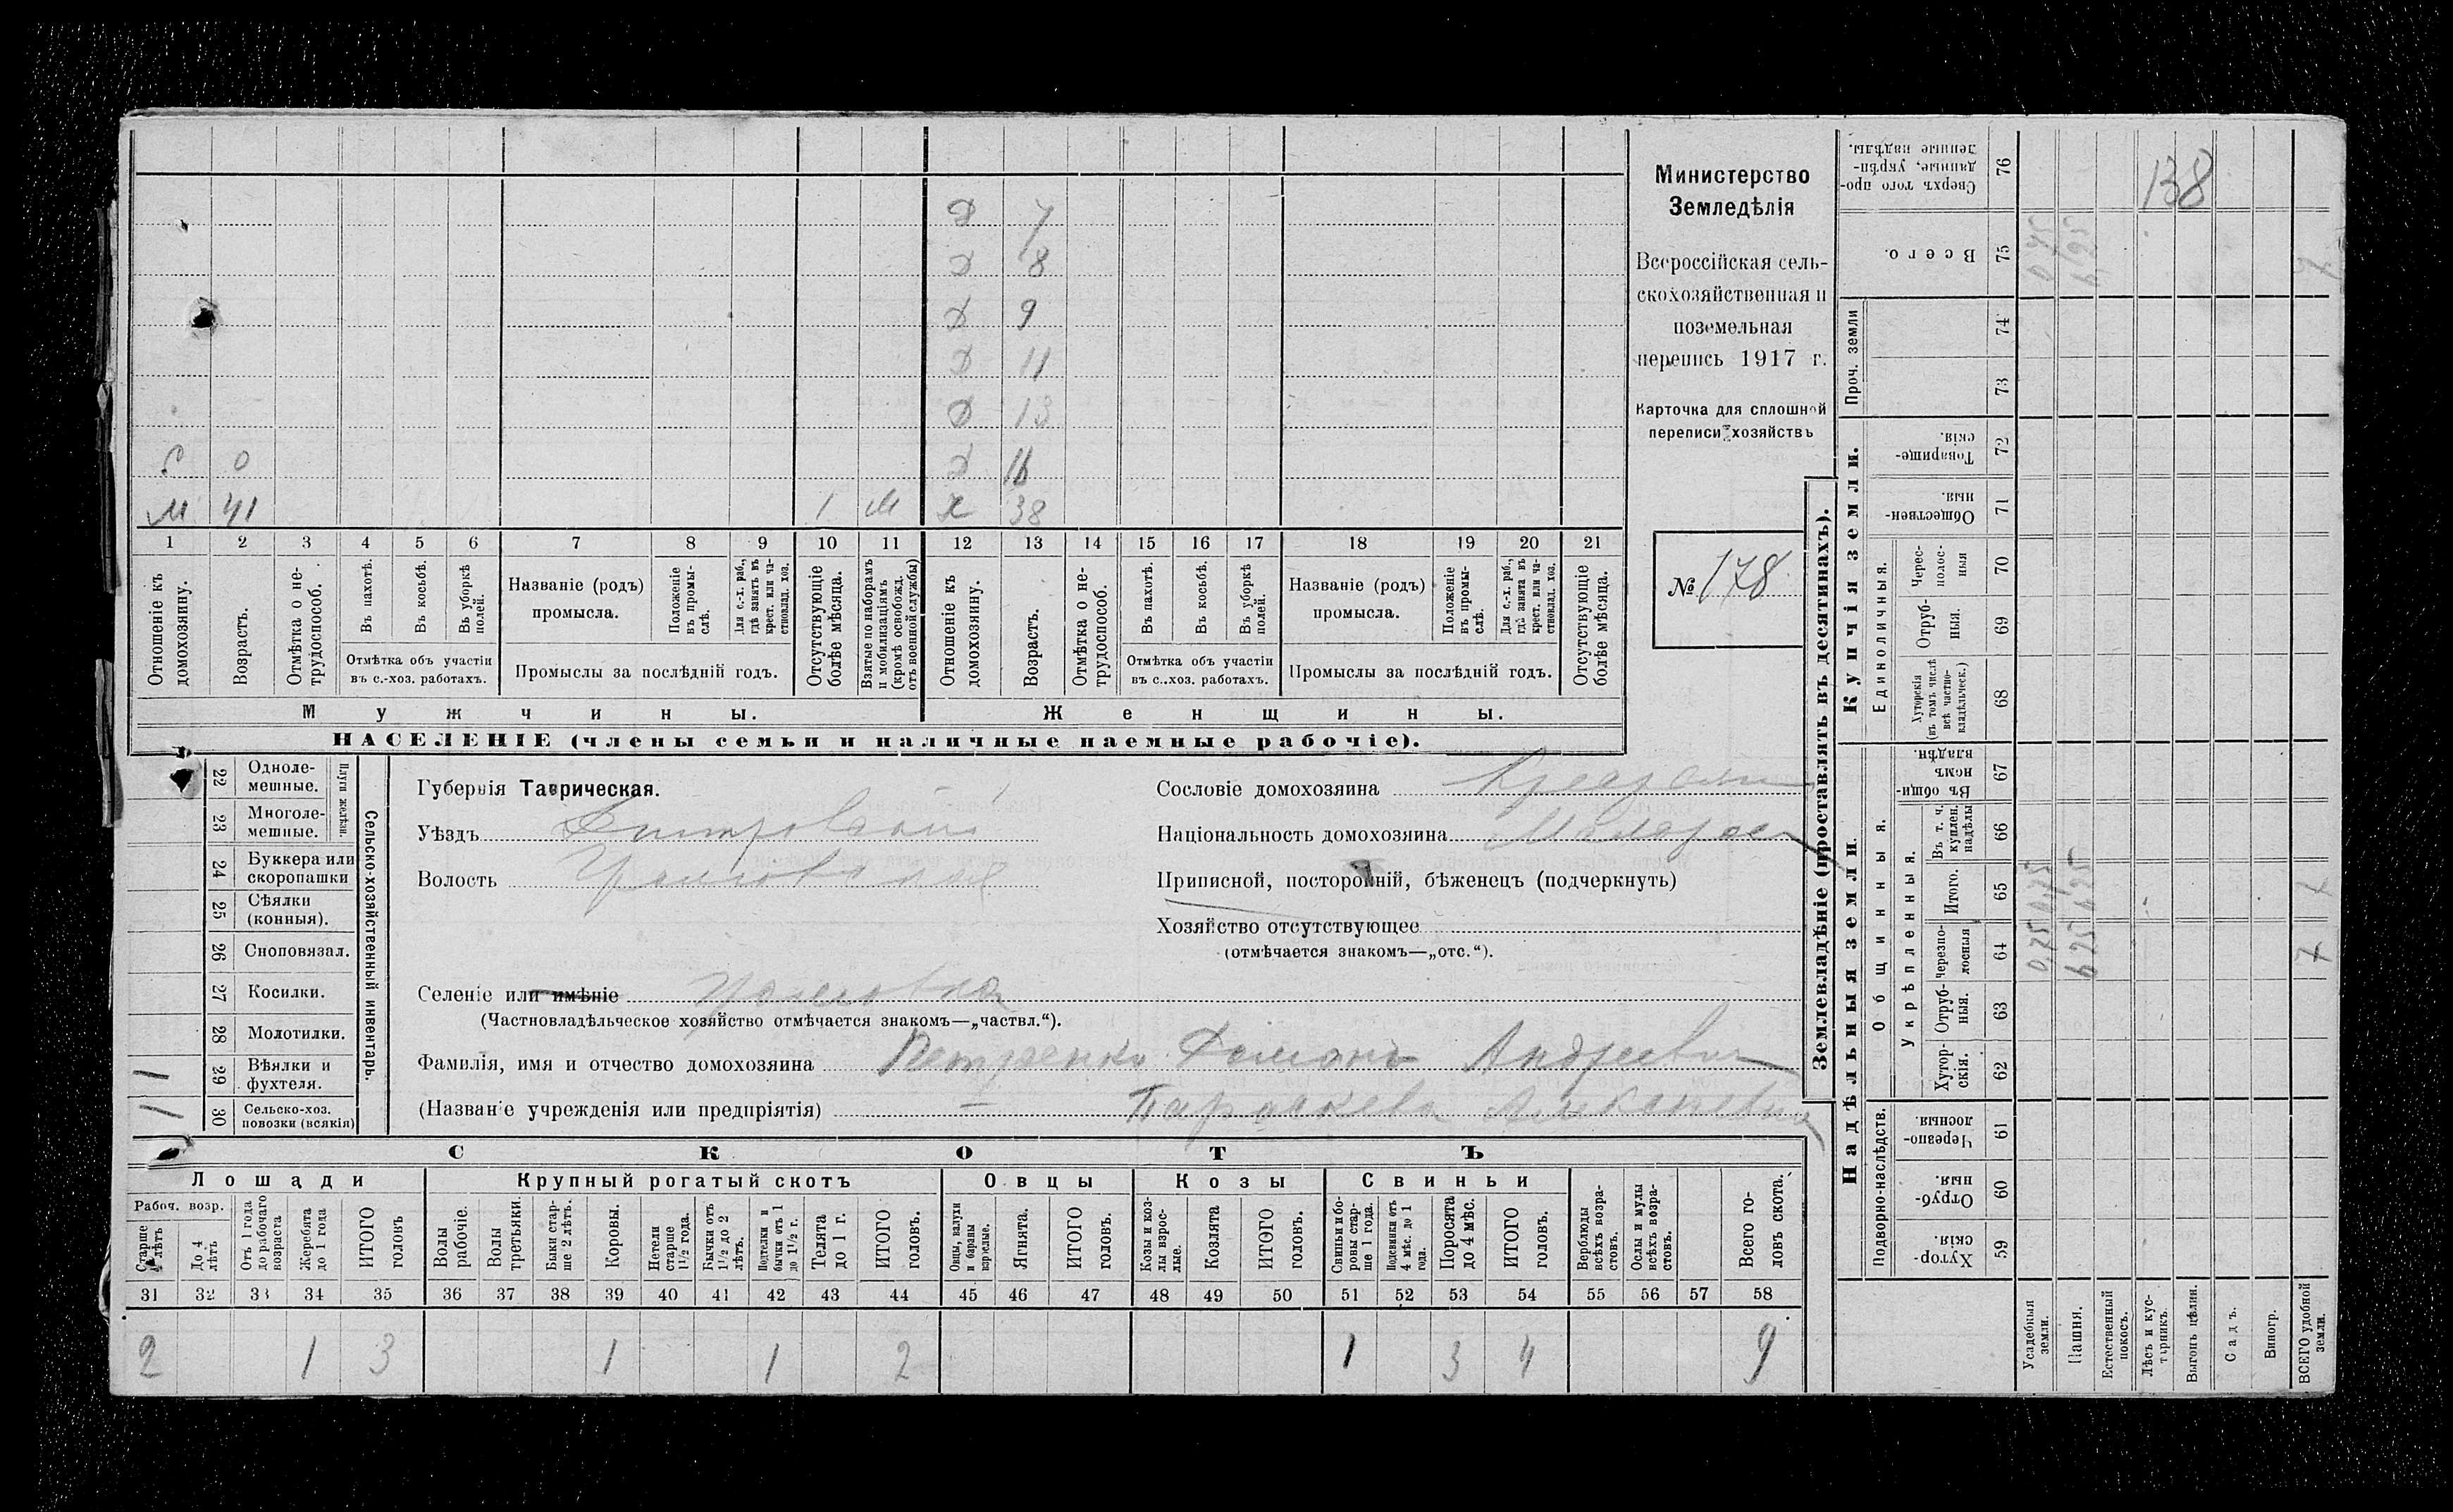 Министерство
Земледѣлія
Всероссійская сель-
скохозяйственная и
поземельная
перепись 1917 г.
Карточка для сплошной
переписи хозяйствъ
№ 178
Д 7
Д 8
Д 9
Д 11
Д 13
С 0 Д 16
М 41 1 М Х 38
1 2 3 4 5 6 7 8 9 10 11 12 13 14 15 16 17 18 19 20 21
Отношеніе къ домохозяину.
Возрастъ.
Отмѣтка о не-трудоспособ.
Въ пахотѣ.
Въ косьбѣ.
Въ уборкѣ полей.
Отмѣтка объ участіи въ с.-хоз. работахъ.
Названіе (родъ) промысла.
Положеніе въ промы-слѣ.
Для с.-х. раб., гдѣ занятъ въ крест. или ча-стновлад. хоз.
Промыслы за послѣдній годъ.
Отсутствующіе болѣе мѣсяца.
Взятые по наборамъ и мобилизаціямъ (кромѣ освобожд. отъ военной службы)
Отношеніе къ домохозяину.
Возрастъ.
Отмѣтка о не-трудоспособ.
Въ пахотѣ.
Въ косьбѣ.
Въ уборкѣ полей.
Отмѣтка объ участіи въ с..хоз. работахъ.
Названіе (родъ) промысла.
Положеніе въ промы-слѣ.
Для с.-х. раб., гдѣ занята въ крест. или ча-стновлад. хоз.
Промыслы за послѣдній годъ.
Отсутствующіе болѣе мѣсяца.
Мужчины. Женщины.
НАСЕЛЕНІЕ (члены семьи и наличные наемные рабочіе).
Сельско-хозяйственный инвентарь.
Плуги желѣзн.
22 Одноле-мешные.
23 Многоле-мешные.
24 Буккера или скоропашки
25 Сѣялки (конныя).
26 Сноповязал.
27 Косилки.
28 Молотилки.
29 Вѣялки и фухтеля. 1
30 Сельско-хоз. повозки (всякія) 1
Губернія Таврическая.
Уѣздъ Днѣпровскій
Волость
Сословіе домохозяина
Національность домохозяина Малорос
Приписной, посторонній, бѣженецъ (подчеркнуть)
Хозяйство отсутствующее
(отмѣчается знакомъ—„отс.“).
Селеніе или имѣніе
(Частновладѣльческое хозяйство отмѣчается знакомъ—„частвл.“).
Фамилія, имя и отчество домохозяина Петренко Андреевич
(Названіе учрежденія или предпріятія) — Параскева
СКОТЪ
Лошади Крупный рогатый скотъ Овцы Козы Свиньи
Рабоч. возр.
Старше 4 лѣтъ
До 4 лѣтъ
Отъ 1 года до рабочаго возраста
Жеребята до 1 года
ИТОГО головъ
Волы рабочіе.
Волы третьяки.
Быки стар-ше 2 лѣтъ.
Коровы.
Нетели старше 1½ года.
Бычки отъ 1½ до 2 лѣтъ.
Подтелки и бычки отъ 1 до 1½ г.
Телята до 1 г.
ИТОГО головъ.
Овцы, валухи и бараны взрослые.
Ягнята.
ИТОГО головъ.
Козы и коз-лы взрос-лые.
Козлята
ИТОГО головъ.
Свиньи и бо-ровы стар-ше 1 года.
Подсвинки отъ 4 мѣс. до 1 года.
Поросята до 4 мѣс.
ИТОГО головъ.
Верблюды всѣхъ возра-стовъ.
Ослы и мулы всѣхъ возра-стовъ.
Всего го-ловъ скота.
31 32 33 34 35 36 37 38 39 40 41 42 43 44 45 46 47 48 49 50 51 52 53 54 55 56 57 58
2 1 3 1 1 2 1 3 4 9
Землевладѣніе (проставлять въ десятинахъ).
Надѣльныя земли. Купчія земли.
Подворно-наслѣдств.
Общинныя.
Укрѣпленныя.
Единоличныя.
Проч. земли
Хутор-скія. 59
Отруб-ныя. 60
Черезпо-лосныя 61
Хутор-скія. 62
Отруб-ныя. 63
Черезпо-лосныя 64
Итого. 65
Въ т. ч. куплен. надѣлы 66
Въ общин-номъ владѣн. 67
Хуторскія (въ томъ числѣ всѣ частно-владѣльческ.) 68
Отруб-ныя. 69
Черес-полос-ныя 70
Обществен-ныя. 71
Товарище-скія. 72
73
74
Всего. 75
Сверхъ того про-данные, укрѣп-ленные надѣлы. 76
138
Усадебныя земли. 0,75 0,75 0,75
Пашня. 6,25 6,25 6,25
Естественный покосъ.
Лѣсъ и кус-тарникъ.
Выгонъ цѣлин.
Садъ.
Виногр.
ВСЕГО удобной земли. 7 7 7